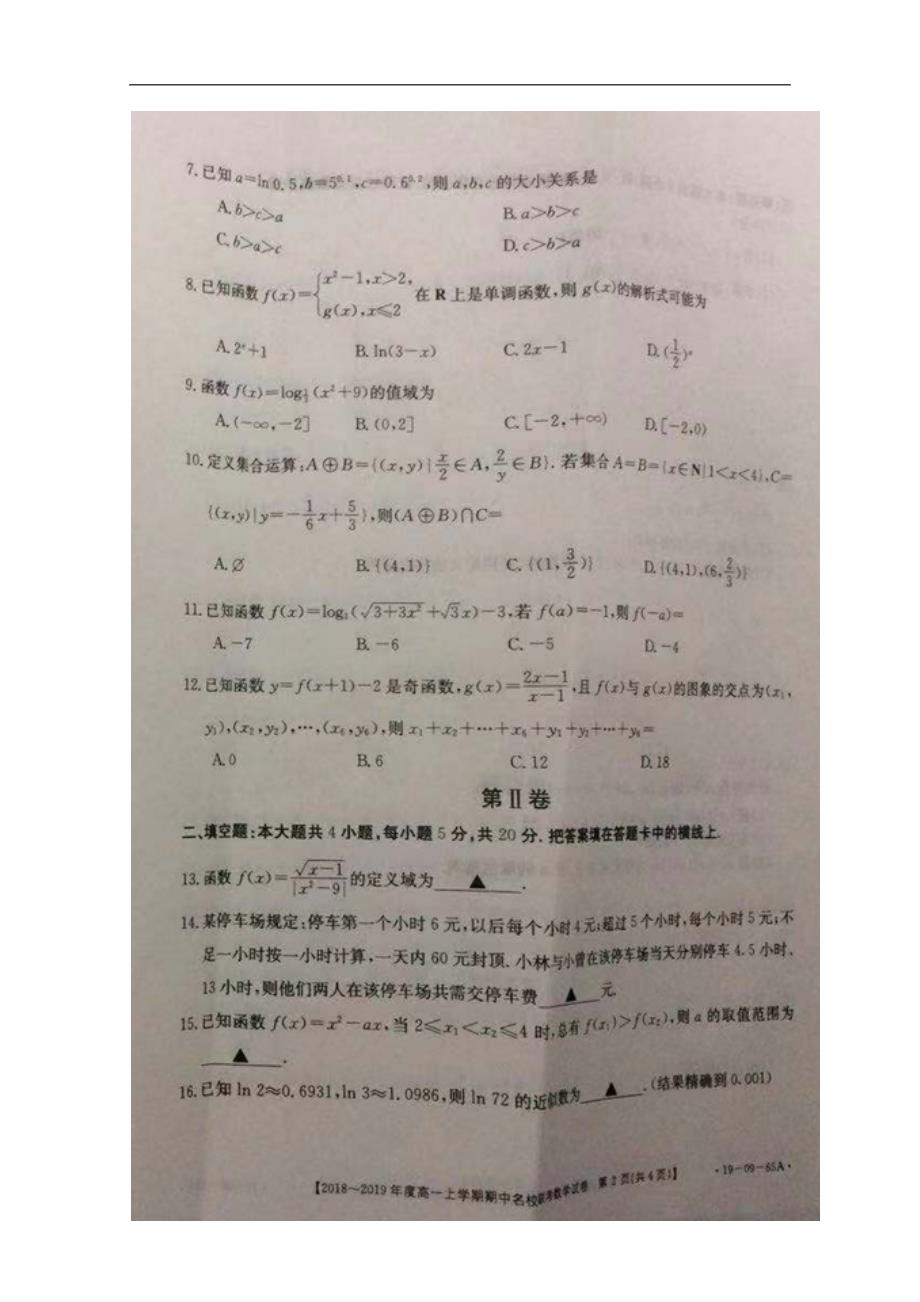 7.已知a=ln 0.5,b=5^{0.1},c=0.6^{0.2},则a,b,c的大小关系是
A.b>c>a B.a>b>c
C.b>a>c D.c>b>a
8.已知函数f(x)={x²-1,x>2, g(x),x≤2 在R上是单调函数,则g(x)的解析式可能为
A.2^x+1 B.ln(3-x) C.2x-1 D.(1/2)^x
9.函数f(x)=log_{1/3}(x²+9)的值域为
A.(-∞,-2] B.(0,2] C.[-2,+∞) D.[-2,0)
10.定义集合运算:A⊕B={(x,y)|x/2∈A,2/y∈B}.若集合A=B={x∈N|1<x<4},C=
{(x,y)|y=-1/6x+5/3},则(A⊕B)∩C=
A.∅ B.{(4,1)} C.{(1,3/2)} D.{(4,1),(6,2/3)}
11.已知函数f(x)=log₃(√(3+3x²)+√3x)-3,若f(a)=-1,则f(-a)=
A.-7 B.-6 C.-5 D.-4
12.已知函数y=f(x+1)-2是奇函数,g(x)=(2x-1)/(x-1),且f(x)与g(x)的图象的交点为(x₁,
y₁),(x₂,y₂),…,(x₆,y₆),则x₁+x₂+…+x₆+y₁+y₂+…+y₆=
A.0 B.6 C.12 D.18
第Ⅱ卷
二、填空题:本大题共4小题,每小题5分,共20分.把答案填在答题卡中的横线上.
13.函数f(x)=√(x-1)/|x²-9|的定义域为▲.
14.某停车场规定:停车第一个小时6元,以后每个小时4元;超过5个小时,每个小时5元;不
足一小时按一小时计算,一天内60元封顶.小林与小曾在该停车场当天分别停车4.5小时、
13小时,则他们两人在该停车场共需交停车费▲元.
15.已知函数f(x)=x²-ax,当2≤x₁<x₂≤4时,总有f(x₁)>f(x₂),则a的取值范围为
▲.
16.已知ln 2≈0.6931,ln 3≈1.0986,则ln 72的近似数为▲.(结果精确到0.001)
【2018~2019年度高一上学期期中名校联考数学试卷 第2页(共4页)】 ·19-09-65A·